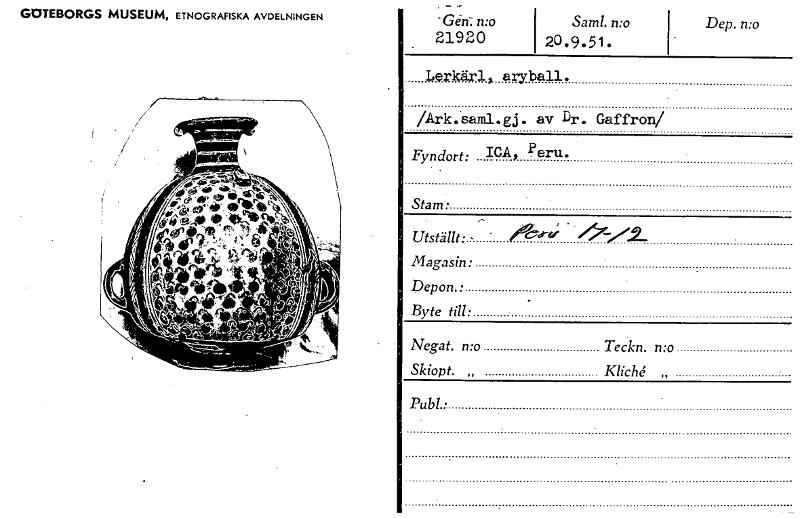 GÖTEBORGS MUSEUM, ETNOGRAFISKA AVDELNINGEN
Gen. n:o Saml. n:o Dep. n:o
21920 20.9.51.
Lerkärl, aryball.
/Ark.saml.gj. av Dr. Gaffron/
Fyndort: ICA, Peru.
Stam:
Utställt: Perú M-12
Magasin:
Depon.:
Byte till:
Negat. n:o Teckn. n:o
Skiopt. „ Kliché „
Publ.: